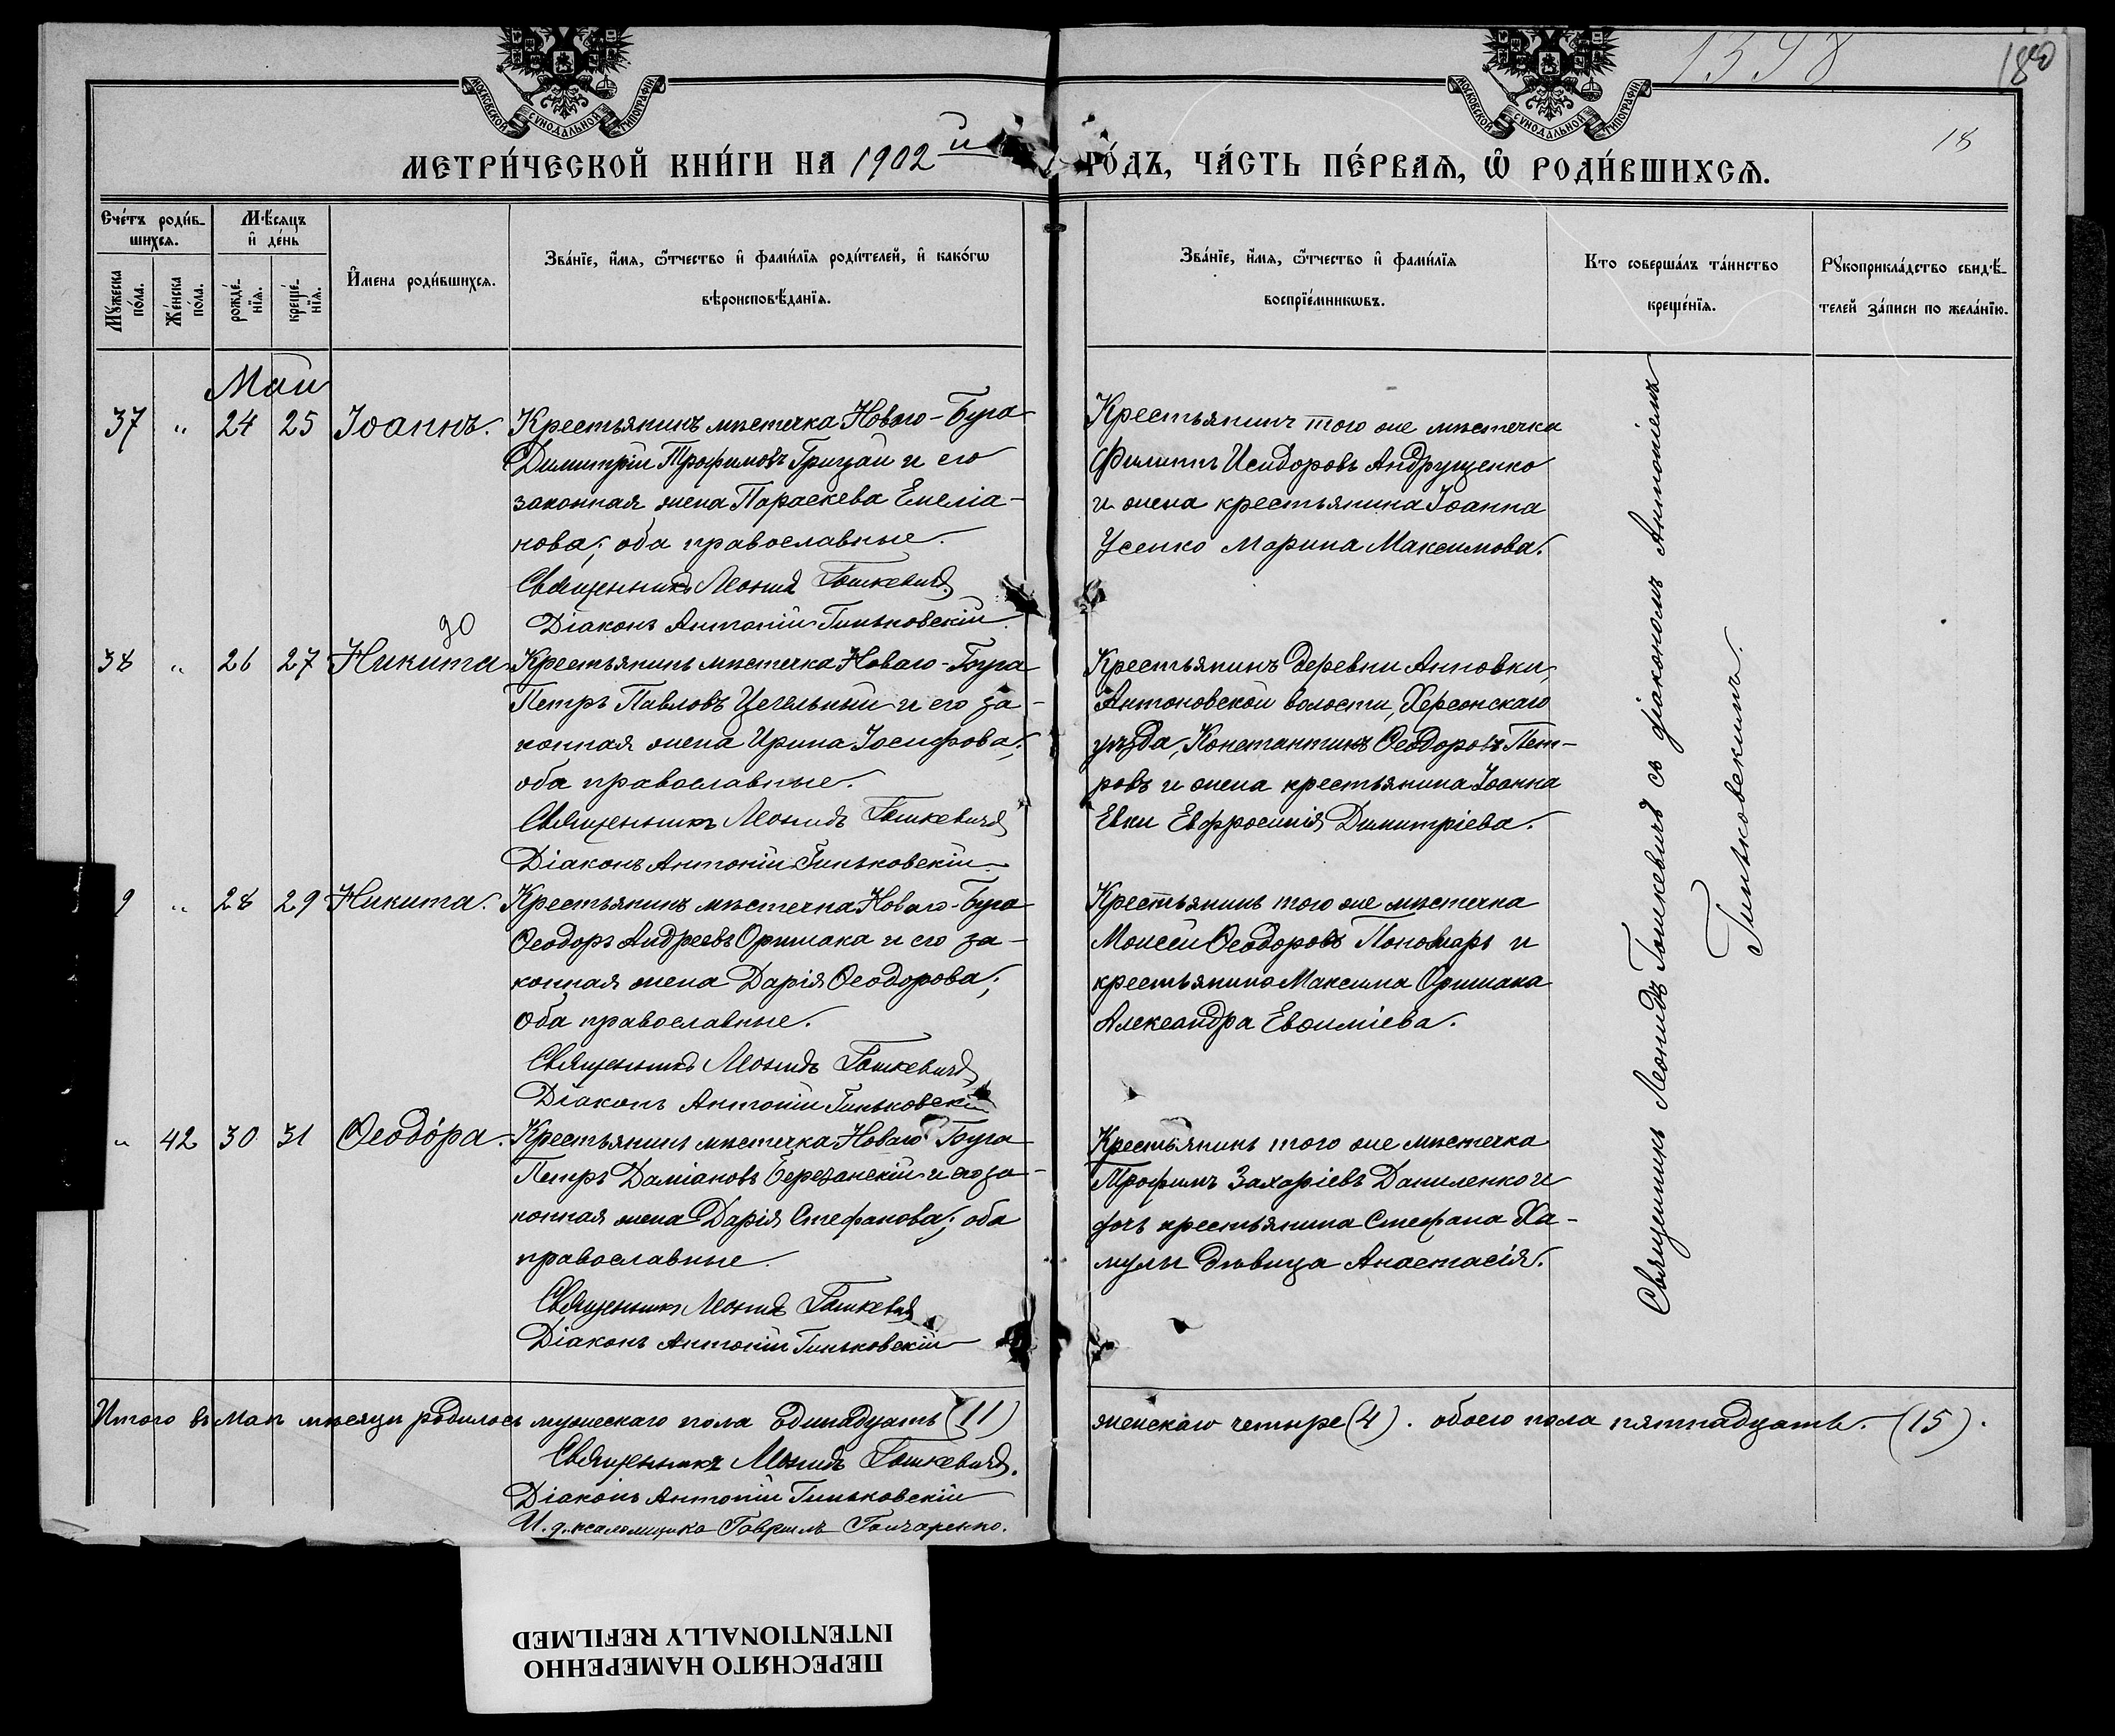 МОСКОВСКОЙ СѴНОДАЛЬНОЙ ТИПОГРАФІИ
МОСКОВСКОЙ СѴНОДАЛЬНОЙ ТИПОГРАФІИ
1398
180
18
МЕТРИ́ЧЕСКОЙ КНИ́ГИ НА 1902й
ГО́ДЪ, ЧА́СТЬ ПЕ́РВАѦ, Ѽ РОДИ́ВШИХСѦ.
Счéтъ роди́в-
шихсѧ.
Мѣ́сяцъ
и҆ де́нь
Мꙋ́жеска по́ла.
Же́нска по́ла.
рожде́нїѧ.
креще́нїѧ.
И҆мена роди́вшихсѧ.
Зва́нїе, и҆́мѧ, ѻ҆́тчество и҆ фами́лїѧ роди́телей, и҆ како́гѡ
вѣроисповѣ́данїѧ.
Зва́нїе, и҆́мѧ, ѻ҆́тчество и҆ фами́лїѧ
воспрїе́мникѡвъ.
Кто соверша́лъ та́инство
креще́нїѧ.
Рꙋкоприкла́дство свидѣ́-
телей за́писи по жела́нїю.
Май
37 " 24 25 Іоаннъ. Крестьянинъ мѣстечка Новаго-Буга
Димитрій Трофимовъ Грицай и его
законная жена Параскева Емеліа-
нова; оба православные.
Священникъ Леонид Гошкевичъ
Діаконъ Антоній Гиньковскій
Крестьянинъ того же мѣстечка
Филиппъ Исидоровъ Андрущенко
и жена крестьянина Іоанна
Усенко Марина Максимова.
до
38 " 26 27 Никита Крестьянинъ мѣстечка Новаго-Буга
Петръ Павловъ Цегельный и его за-
конная жена Ирина Іосифова;
оба православные.
Священникъ Леонидъ Гошкевичъ
Діаконъ Антоній Гиньковскій
Крестьянинъ деревни Анновки,
Антоновской волости, Херсонскаго
уѣзда, Константинъ Ѳеодоровъ Пет-
ровъ и жена крестьянина Іоанна
Евки Евфросинія Димитріева.
9 " 28 29 Никита. Крестьянинъ мѣстечка Новаго-Буга
Ѳеодоръ Андреевъ Оришака и его за-
конная жена Дарія Ѳеодорова;
оба православные.
Священникъ Леонидъ Гошкевичъ
Діаконъ Антоній Гиньковскій
Крестьянинъ того же мѣстечка
Моисей Ѳеодоровъ Пономарь и
крестьянина Максима Оришака
Александра Евѳиміева.
" 42 30 31 Ѳеодо́ра. Крестьянинъ мѣстечка Новаго Буга
Петръ Даміановъ Березанскій и его за-
конная жена Дарія Стефанова; оба
православные.
Священникъ Леонид Гошкевичъ
Діаконъ Антоній Гиньковскій
Крестьянинъ того же мѣстечка
Трофимъ Захаріевъ Даниленко и
дочь крестьянина Стефана Ха-
мулы дѣвица Анастасія.
Священникъ Леонидъ Гошкевичъ съ діакономъ Антоніемъ
Гиньковскимъ.
Итого въ маѣ мѣсяцѣ родилось мужескаго пола одинадцать (11)
женскаго четыре (4). обоего пола пятнадцать. (15).
Священникъ Леонидъ Гошкевичъ.
Діаконъ Антоній Гиньковскій
И. д. псаломщика Гавріилъ Гончаренко.
ПЕРЕСНЯТО НАМЕРЕННО
INTENTIONALLY REFILMED